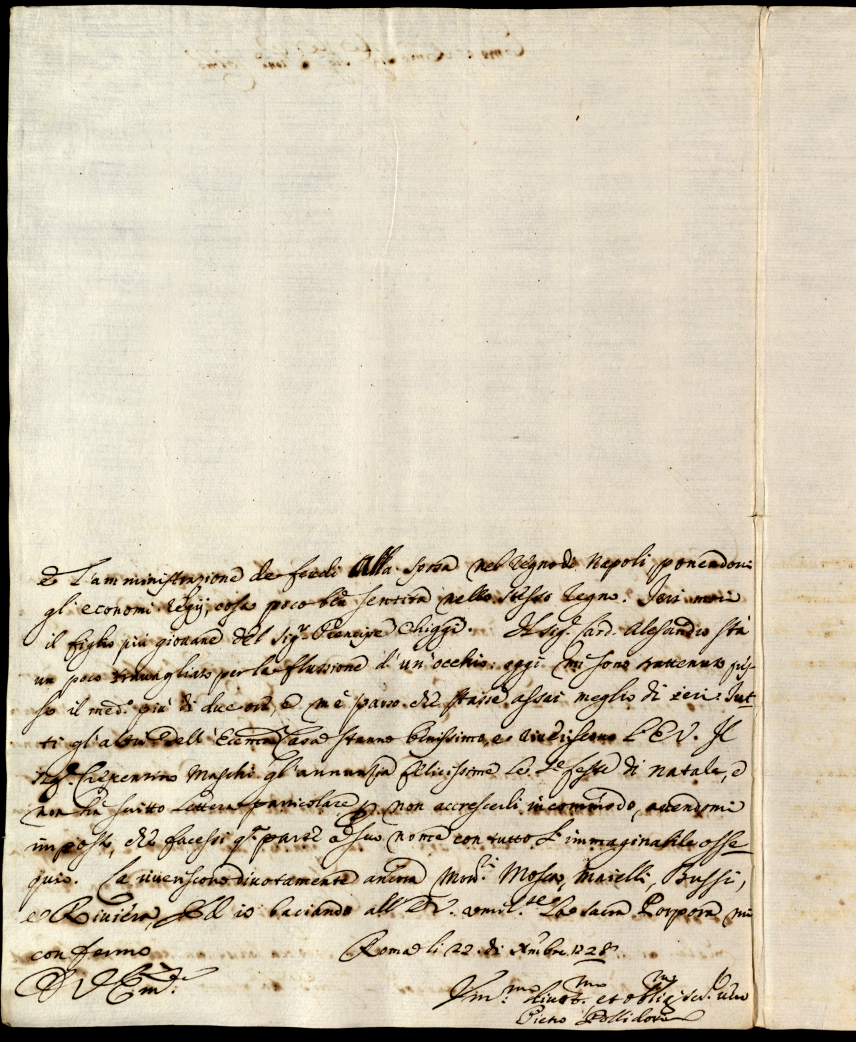 e l'amministrazione de feudi alla spora nel regno di Napoli, ponendovi
gl'economi Regij, cosa poco bn sentita nello stesso Regno. Jeri morì
il figlio più giovane del Sigr. Prencipe Chiggi. Il Sigr. Card. Alesandro stà
un poco travagliato per la flussione d'un'occhio: oggi mi sono trattenuto pres-
so il medo. più di due ore, e m'è parso che stasse assai meglio di ieri. Tut-
ti gl'altri dell'Eccma Casa stanno benissimo, e riveriscono l'E.V. Il
Sigr. Maschi gl'annunzia felicissime le Ste feste di natale, e
non hà scritto lettera particolare p non accrescerli incommodo, avendomi
imposto, che facessi qta parte à suo nome con tutto l'immaginabile osse-
quio. La riveriscono divotamente ancora Monri. Mosca, Maielli, Bussi,
e Riviera, Ed io baciando all'E.V. umilte. La sacra Porpora, mi
confermo
Roma li 22. di Xmbre 1728.
D. V. Em.
Vmmo divotmo et obligmo sere. vero
Pietro Pollidori